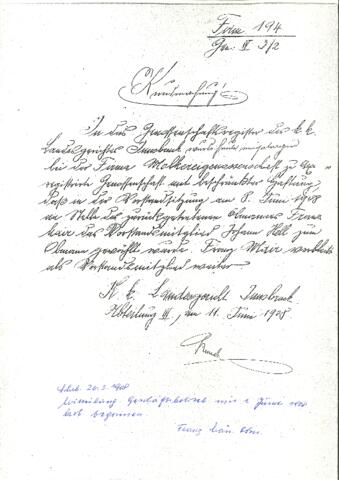 Firm 194
Gen. II 3/2
Kundmachung!
In das Genossenschaftsregister des k. k.
Landesgerichtes Innsbruck wurde heute
bei der Firma Molkereigenossenschaft
registrierte Genossenschaft mit beschränkter Haftung,
daß in der Vorstandssitzung am 8. Juni 1908
an Stelle des zurückgetretenen Obmannes Franz
Mair das Vorstandsmitglied Johann Höll zum
Obmann gewählt wurde. Franz Mair verbleibt
als Vorstandsmitglied weiter
K. k. Landesgericht Innsbruck
Abteilung III, am 11. Juni 1908
1908
begonnen.
Franz Obm.